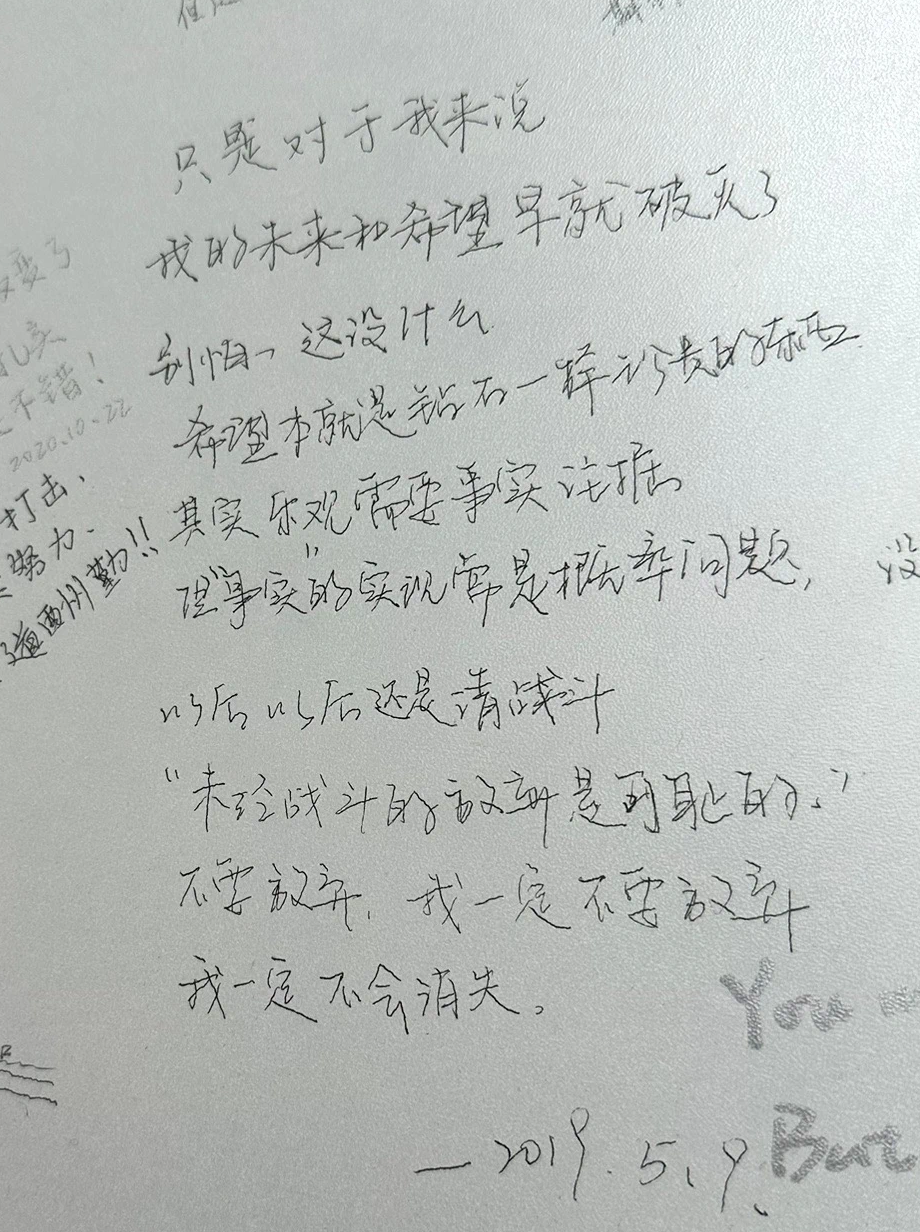 只是对于我来说
我的未来和希望早就破灭了
别怕、这没什么
希望本就是钻石一样珍贵的东西
其实乐观需要事实论据
但"事实"的实现常是概率问题,
没
以后以后还是请战斗
"未经战斗的放弃是可耻的."
不要放弃, 我一定不要放弃
我一定不会消失。
—2019.5.9.
变了
不错!
2020.10.22
打击、
努力、
道酬勤!!
You
But